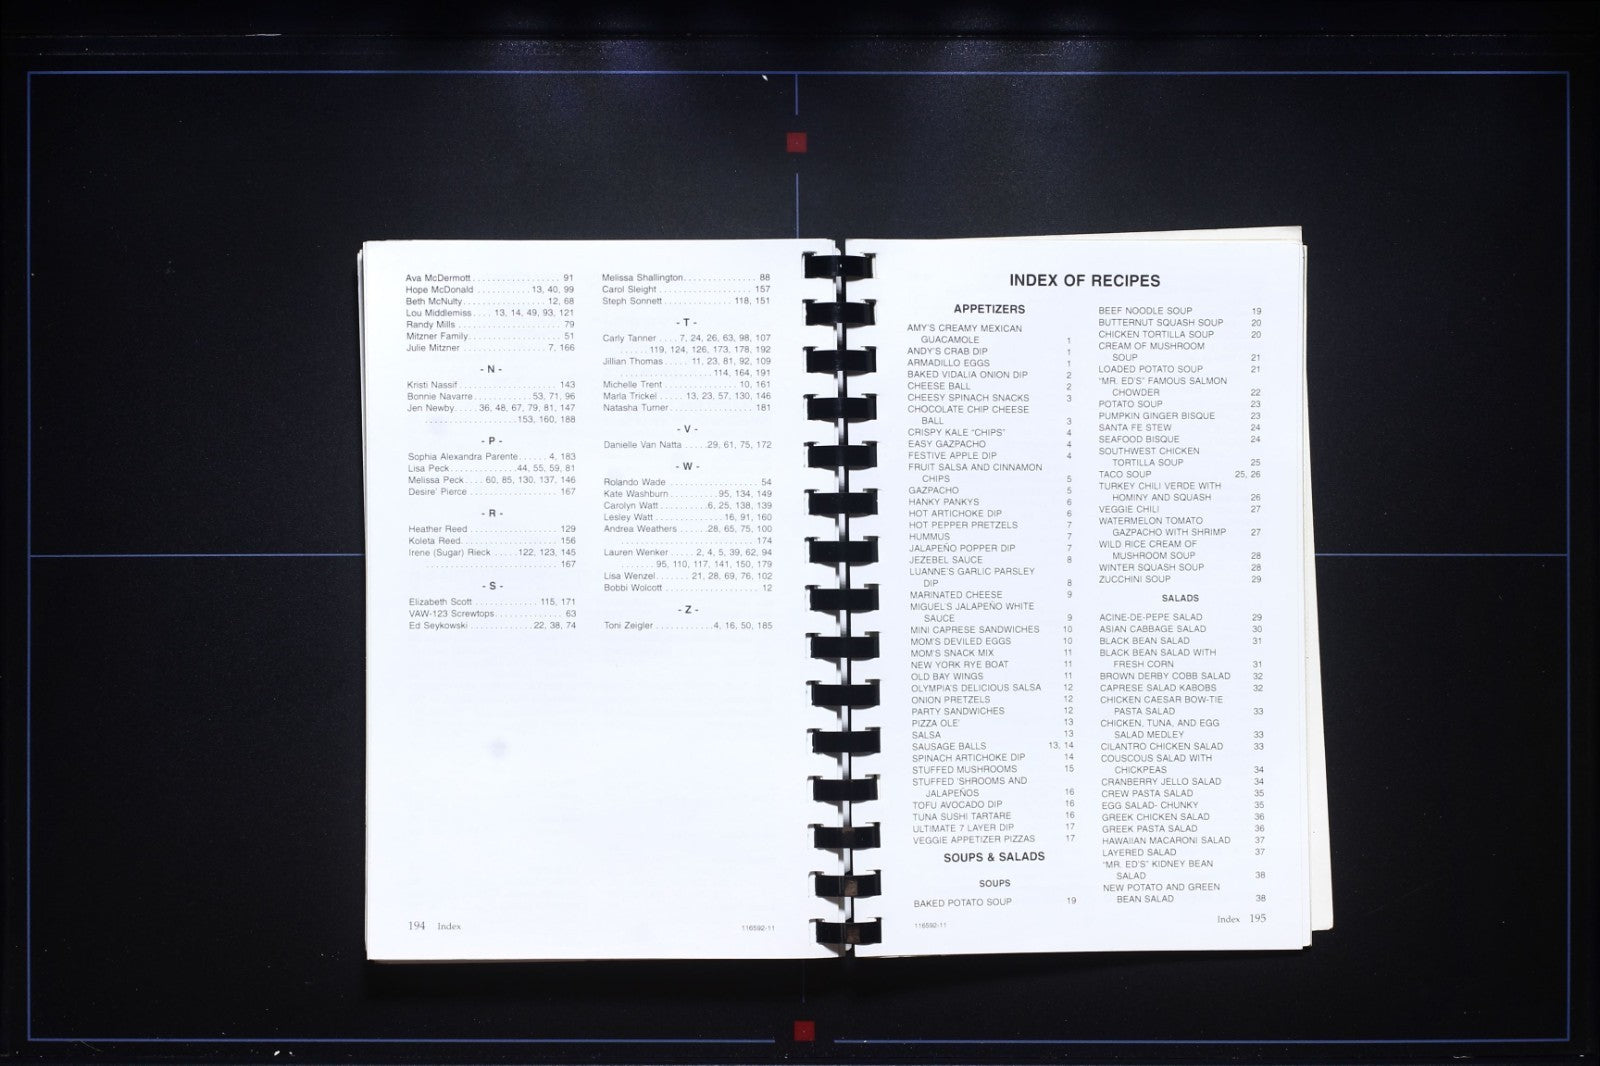 Ava McDermott . . . . . . . . . . . . . . . . . 91
Hope McDonald . . . . . . . . . . . 13, 40, 99
Beth McNulty. . . . . . . . . . . . . . . . 12, 68
Lou Middlemiss . . . . 13, 14, 49, 93, 121
Randy Mills . . . . . . . . . . . . . . . . . . . . 79
Mitzner Family. . . . . . . . . . . . . . . . . . 51
Julie Mitzner . . . . . . . . . . . . . . . . 7, 166
- N -
Kristi Nassif . . . . . . . . . . . . . . . . . . . 143
Bonnie Navarre . . . . . . . . . . . 53, 71, 96
Jen Newby. . . . . 36, 48, 67, 79, 81, 147
. . . . . . . . . . . . . . . . . . 153, 160, 188
- P -
Sophia Alexandra Parente. . . . . . 4, 183
Lisa Peck. . . . . . . . . . . . . 44, 55, 59, 81
Melissa Peck . . . . 60, 85, 130, 137, 146
Desire' Pierce . . . . . . . . . . . . . . . . 167
- R -
Heather Reed . . . . . . . . . . . . . . . . . 129
Koleta Reed. . . . . . . . . . . . . . . . . . . 156
Irene (Sugar) Rieck . . . . . 122, 123, 145
. . . . . . . . . . . . . . . . . . . . . . . . . . 167
- S -
Elizabeth Scott . . . . . . . . . . . . . 115, 171
VAW-123 Screwtops. . . . . . . . . . . . . . 63
Ed Seykowski . . . . . . . . . . . . . 22, 38, 74
194 Index
Melissa Shallington. . . . . . . . . . . . . . . 88
Carol Sleight . . . . . . . . . . . . . . . . . . . 157
Steph Sonnett . . . . . . . . . . . . . . 118, 151
- T -
Carly Tanner . . . . 7, 24, 26, 63, 98, 107
. . . . . . 119, 124, 126, 173, 178, 192
Jillian Thomas . . . . . 11, 23, 81, 92, 109
. . . . . . . . . . . . . . . . . . 114, 164, 191
Michelle Trent . . . . . . . . . . . . . . . 10, 161
Marla Trickel . . . . . . 13, 23, 57, 130, 146
Natasha Turner. . . . . . . . . . . . . . . . . 181
- V -
Danielle Van Natta . . . . . 29, 61, 75, 172
- W -
Rolando Wade . . . . . . . . . . . . . . . . . . 54
Kate Washburn . . . . . . . . . . 95, 134, 149
Carolyn Watt . . . . . . . . . . 6, 25, 138, 139
Lesley Watt . . . . . . . . . . . . . . 16, 91, 160
Andrea Weathers . . . . . . 28, 65, 75, 100
. . . . . . . . . . . . . . . . . . . . . . . . . . . 174
Lauren Wenker . . . . . 2, 4, 5, 39, 62, 94
. . . . . . . 95, 110, 117, 141, 150, 179
Lisa Wenzel . . . . . . . 21, 28, 69, 76, 102
Bobbi Wolcott . . . . . . . . . . . . . . . . . . . 12
- Z -
Toni Zeigler . . . . . . . . . . . . 4, 16, 50, 185
116592-11
INDEX OF RECIPES
APPETIZERS
AMY'S CREAMY MEXICAN
GUACAMOLE 1
ANDY'S CRAB DIP 1
ARMADILLO EGGS 1
BAKED VIDALIA ONION DIP 2
CHEESE BALL 2
CHEESY SPINACH SNACKS 3
CHOCOLATE CHIP CHEESE
BALL 3
CRISPY KALE "CHIPS" 4
EASY GAZPACHO 4
FESTIVE APPLE DIP 4
FRUIT SALSA AND CINNAMON
CHIPS 5
GAZPACHO 5
HANKY PANKYS 6
HOT ARTICHOKE DIP 6
HOT PEPPER PRETZELS 7
HUMMUS 7
JALAPEÑO POPPER DIP 7
JEZEBEL SAUCE 8
LUANNE'S GARLIC PARSLEY
DIP 8
MARINATED CHEESE 9
MIGUEL'S JALAPEÑO WHITE
SAUCE 9
MINI CAPRESE SANDWICHES 10
MOM'S DEVILED EGGS 10
MOM'S SNACK MIX 11
NEW YORK RYE BOAT 11
OLD BAY WINGS 11
OLYMPIA'S DELICIOUS SALSA 12
ONION PRETZELS 12
PARTY SANDWICHES 12
PIZZA OLE' 13
SALSA 13
SAUSAGE BALLS 13, 14
SPINACH ARTICHOKE DIP 14
STUFFED MUSHROOMS 15
STUFFED 'SHROOMS AND
JALAPEÑOS 16
TOFU AVOCADO DIP 16
TUNA SUSHI TARTARE 16
ULTIMATE 7 LAYER DIP 17
VEGGIE APPETIZER PIZZAS 17
SOUPS & SALADS
SOUPS
BAKED POTATO SOUP 19
116592-11
BEEF NOODLE SOUP 19
BUTTERNUT SQUASH SOUP 20
CHICKEN TORTILLA SOUP 20
CREAM OF MUSHROOM
SOUP 21
LOADED POTATO SOUP 21
"MR. ED'S" FAMOUS SALMON
CHOWDER 22
POTATO SOUP 23
PUMPKIN GINGER BISQUE 23
SANTA FE STEW 24
SEAFOOD BISQUE 24
SOUTHWEST CHICKEN
TORTILLA SOUP 25
TACO SOUP 25, 26
TURKEY CHILI VERDE WITH
HOMINY AND SQUASH 26
VEGGIE CHILI 27
WATERMELON TOMATO
GAZPACHO WITH SHRIMP 27
WILD RICE CREAM OF
MUSHROOM SOUP 28
WINTER SQUASH SOUP 28
ZUCCHINI SOUP 29
SALADS
ACINE-DE-PEPE SALAD 29
ASIAN CABBAGE SALAD 30
BLACK BEAN SALAD 31
BLACK BEAN SALAD WITH
FRESH CORN 31
BROWN DERBY COBB SALAD 32
CAPRESE SALAD KABOBS 32
CHICKEN CAESAR BOW-TIE
PASTA SALAD 33
CHICKEN, TUNA, AND EGG
SALAD MEDLEY 33
CILANTRO CHICKEN SALAD 33
COUSCOUS SALAD WITH
CHICKPEAS 34
CRANBERRY JELLO SALAD 34
CREW PASTA SALAD 35
EGG SALAD- CHUNKY 35
GREEK CHICKEN SALAD 36
GREEK PASTA SALAD 36
HAWAIIAN MACARONI SALAD 37
LAYERED SALAD 37
"MR. ED'S" KIDNEY BEAN
SALAD 38
NEW POTATO AND GREEN
BEAN SALAD 38
Index 195